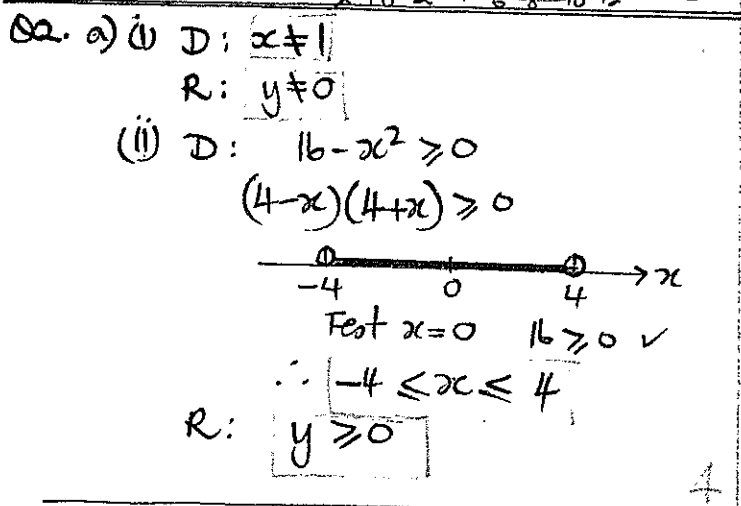 Q2. a) (i) D: x ≠ 1
R: y ≠ 0
(ii) D: 16 - x² ⩾ 0
(4-x)(4+x) ⩾ 0
-4 0 4 x
Test x=0 16 ⩾ 0 ✓
∴ -4 ⩽ x ⩽ 4
R: y ⩾ 0
4